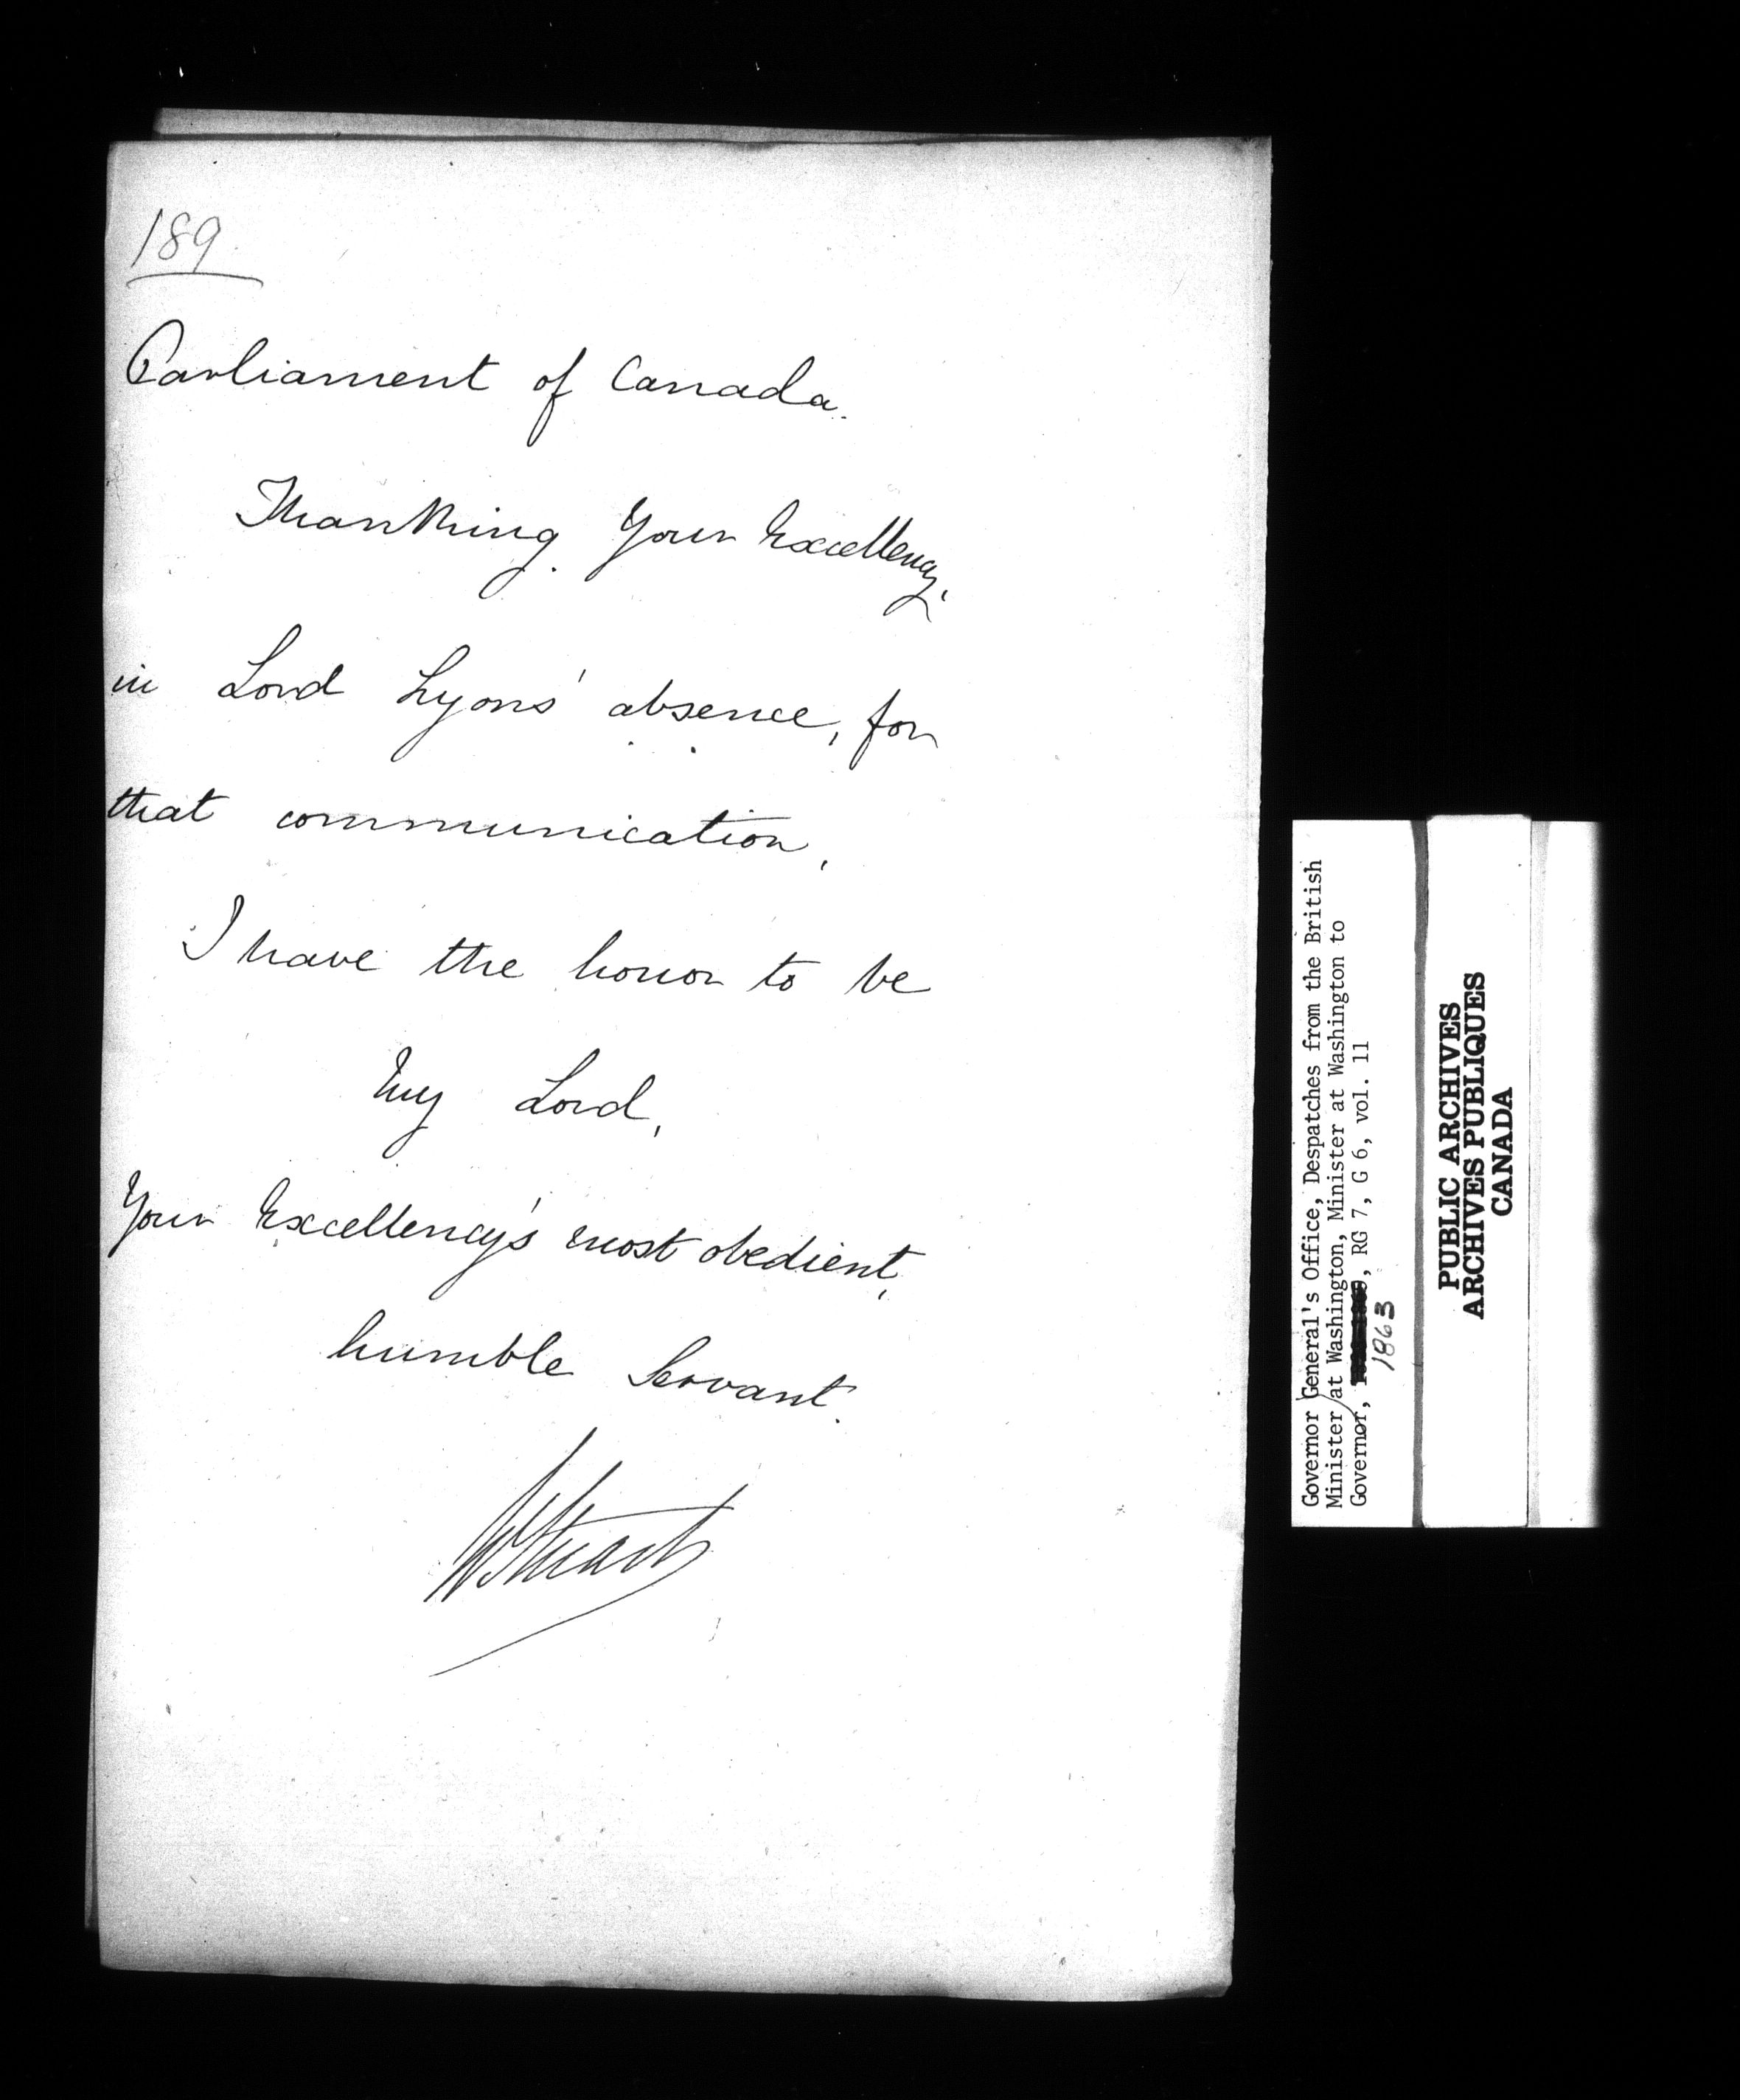 189
Parliament of Canada.
Thanking Your Excellency,
in Lord Lyons' absence, for
that communication,
I have the honor to be
My Lord,
Your Excellency's most obedient,
humble Servant.
W Stuart
Governor General's Office, Despatches from the British
Minister at Washington, Minister at Washington to
Governor, , RG 7, G 6, vol. 11
1863
PUBLIC ARCHIVES
ARCHIVES PUBLIQUES
CANADA